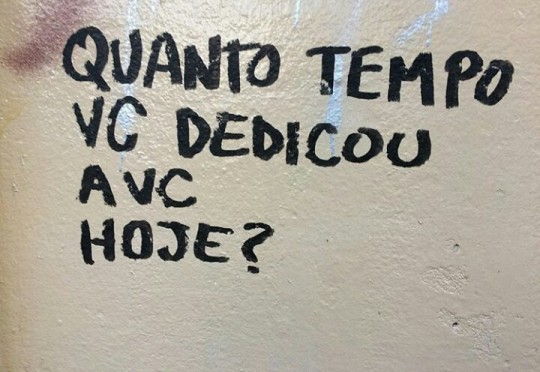 QUANTO TEMPO
VC DEDICOU
A VC
HOJE?